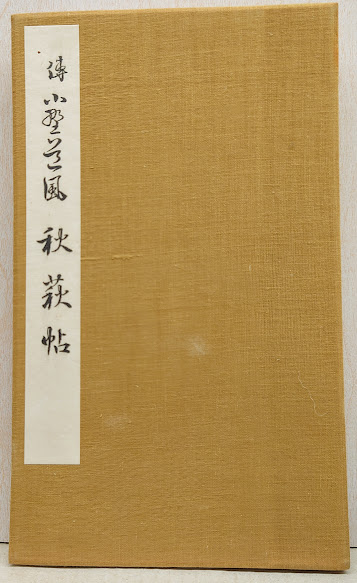 傳 小野道風 秋萩帖